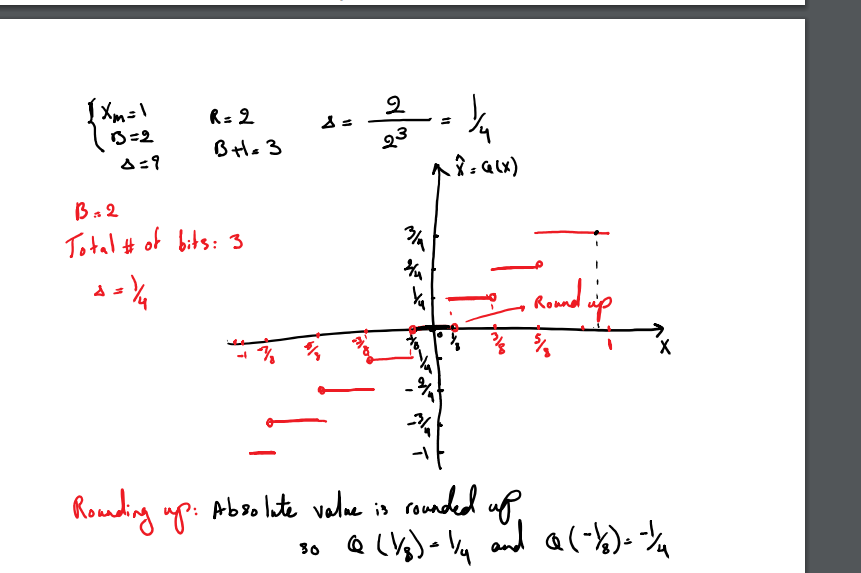 Xm=1 R=2 Δ = 2/2^3 = 1/4
B=2 B+1=3
Δ=?
X̂ = Q(X)
B=2
Total # of bits: 3
Δ = 1/4
3/4
2/4
1/4
Round up
-1 -7/8 -5/8 -3/8 -1/8 0 1/8 3/8 5/8 1 X
-1/4
-2/4
-3/4
-1
Rounding up: Absolute value is rounded up
so Q(1/8)=1/4 and Q(-1/8)=-1/4